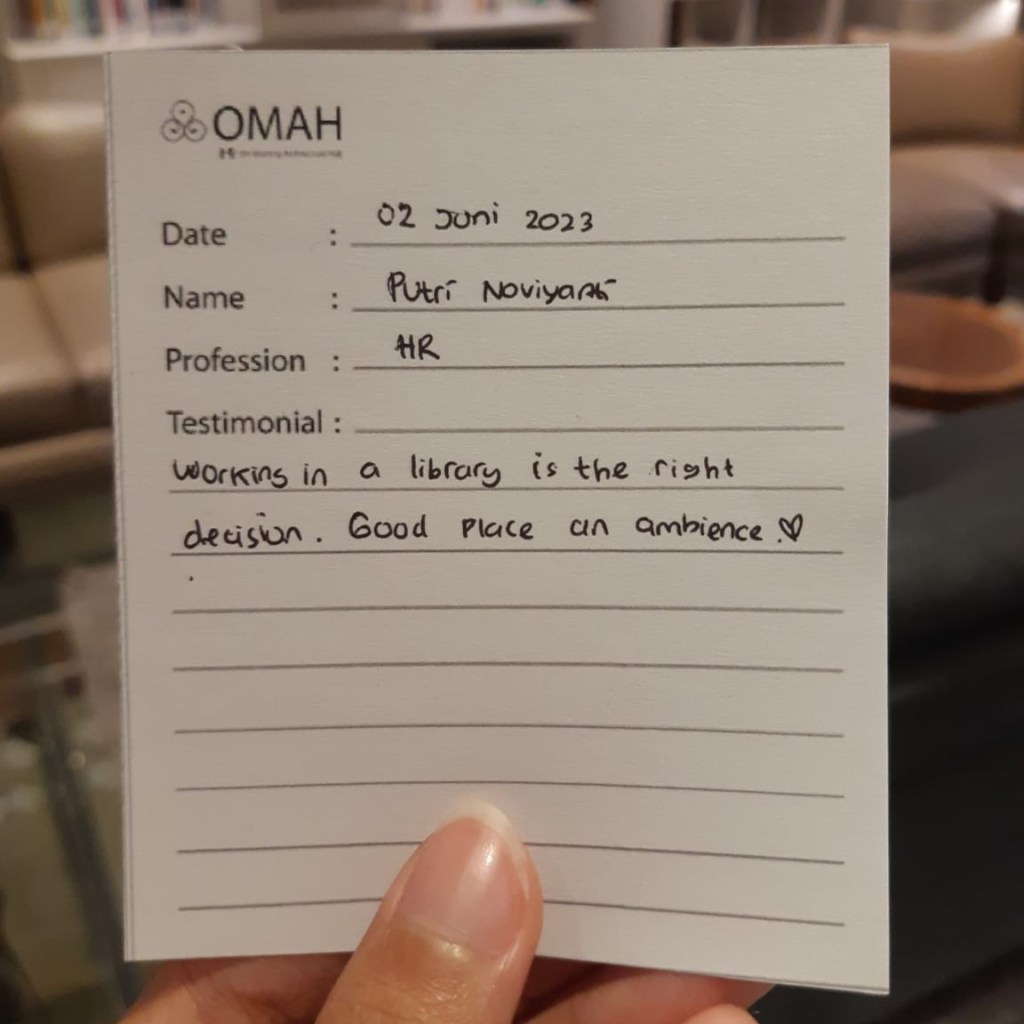 OMAH
Date : 02 Juni 2023
Name : Putri Noviyanti
Profession : HR
Testimonial :
Working in a library is the right
decision. Good Place an ambience.♡